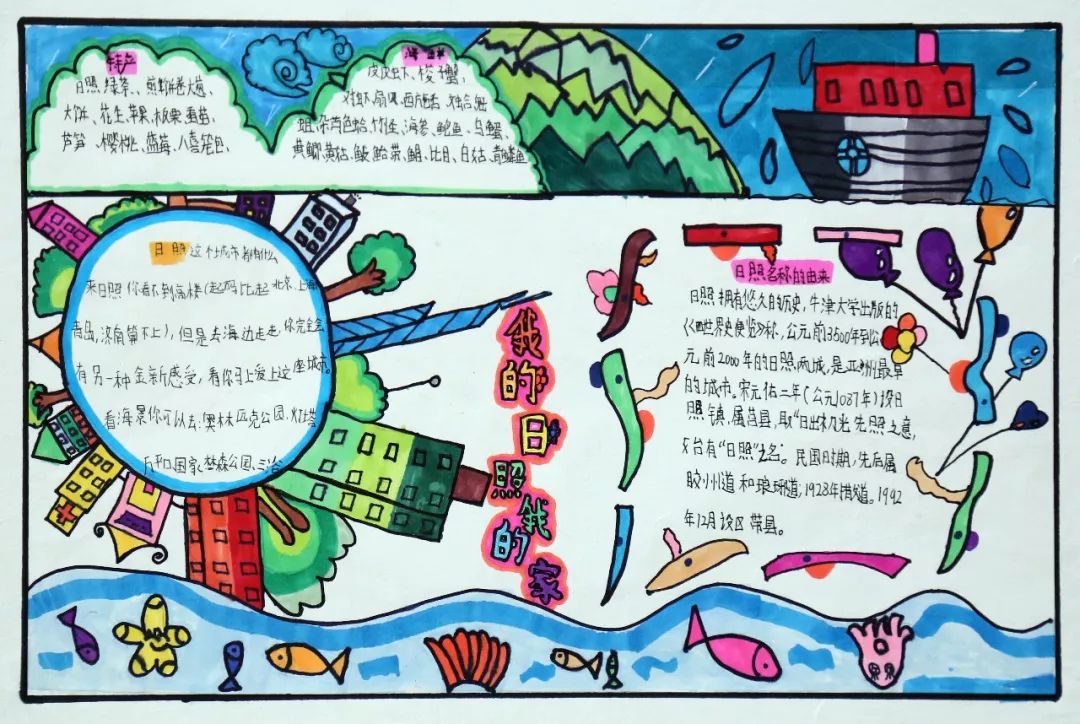 特产
日照绿茶、煎饼卷大葱、
大饼、花生、苹果、板栗、番茄、
芦笋、樱桃、蓝莓、小笼包、
海鲜
皮皮虾、梭子蟹、
对虾、扇贝、西施舌、
杂色蛤、竹蛏、海参、鲍鱼、乌
黄鲫、黄姑、鲅、鲐、鲳、比目、白姑、青鳞鱼
日照这个城市都有什么
来日照你看不到高楼(起码比起北京、上海
青岛,济南算不上),但是去海边走走,你完全会
有另一种全新感受,看你马上爱上这座城市。
看海景你可以去:奥林匹克公园、灯塔
万平口、国家森林公园、
我的日照我的家
日照名称的由来
日照拥有悠久的历史,牛津大学出版的
《世界史便览》称,公元前3500年到公
元前2000年的日照两城,是亚洲最早
的城市。宋元佑二年(公元1087年)设日
照镇,属莒县,取“日出初光先照”之意,
始有“日照”之名。民国时期,先后属
胶州道和琅琊道;1928年道。1942
年12月设区莒县。